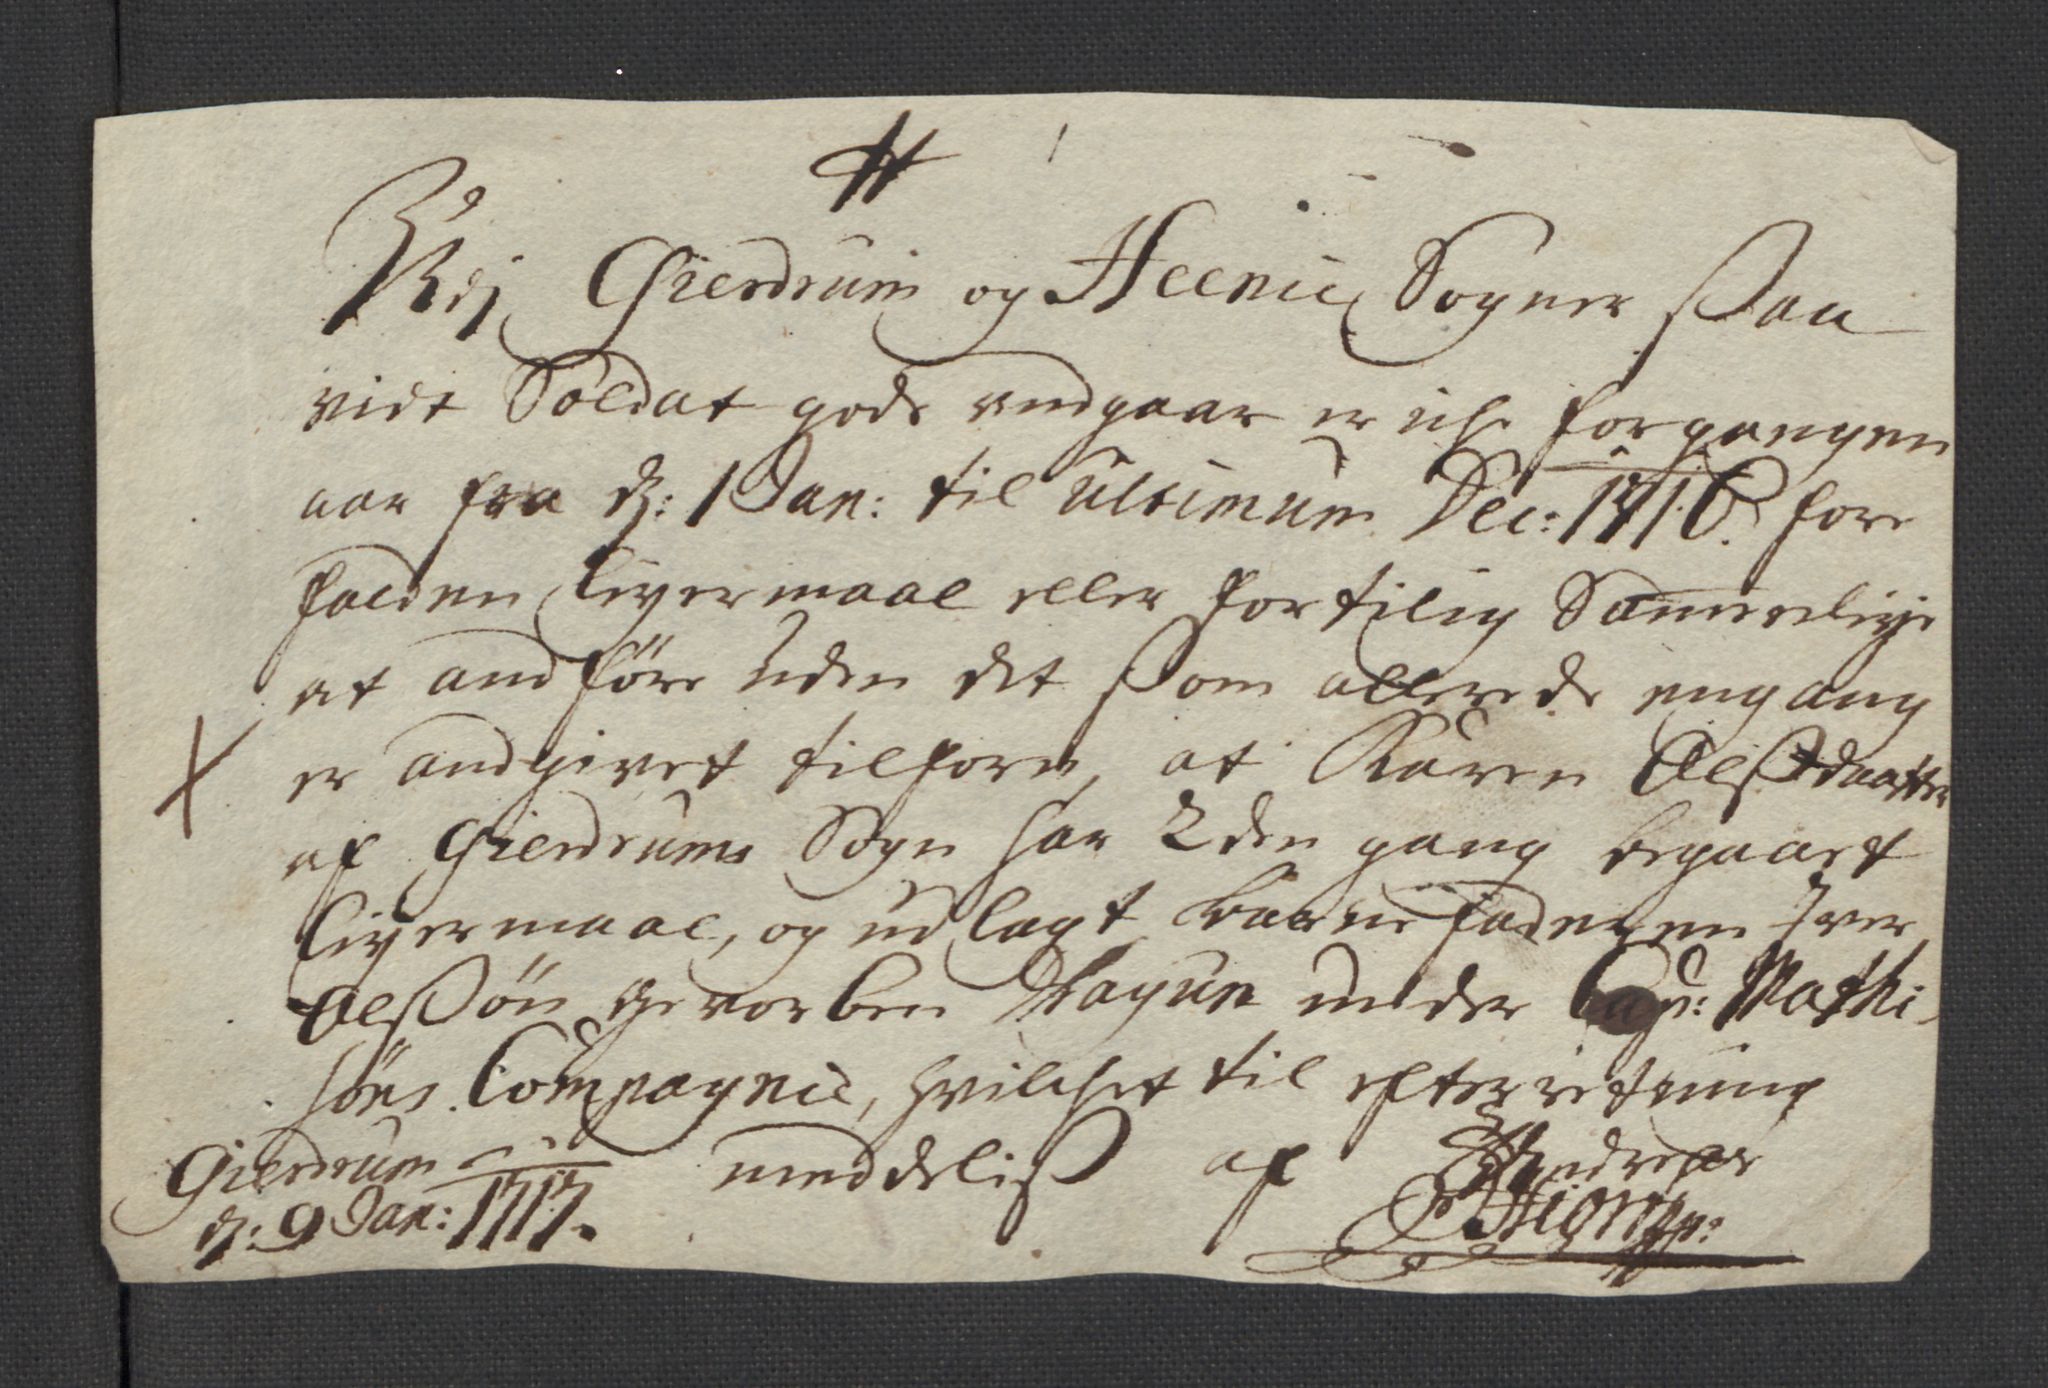 Udj Gierdrum og Heenie Sogner saa
vidt Soldat gods andgaar er iche forgangen
aar fra d: 1 Jan: til ultimum Dec: 1716. fore
falden leyermaal eller fortilig Sammeleye
at andføre uden det som allerede engang
er andgivet tilforn, at Karen Olsdaatter
af Gierdrums Sogn har 2den gang begaaet
leyermaal, og udlagt barnefaderen Iver
Olssøn gevorben Dragun under Cap: Mathi-
søns Compagnie, hvilchet til efterretning
meddelis af
Gierdrum
d: 9 Jan: 1717.